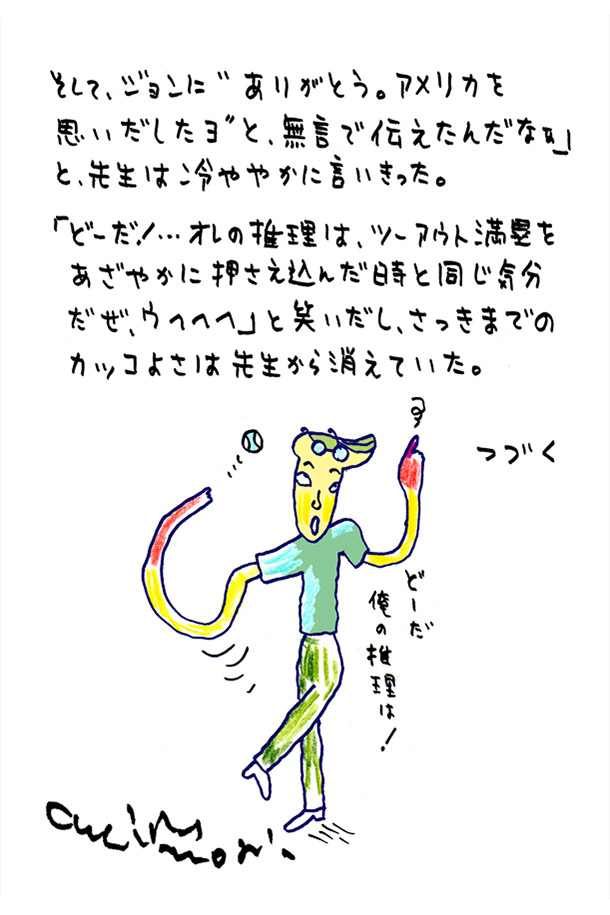 そして、ジョンに〝ありがとう。アメリカを
思いだしたヨ〟と、無言で伝えたんだなぁ」
と、先生は冷ややかに言いきった。
「どーだ!…オレの推理は、ツーアウト満塁を
あざやかに押さえ込んだ時と同じ気分
だぜ、ウヘヘヘ」と笑いだし、さっきまでの
カッコよさは先生から消えていた。
つづく
どーだ
俺の推理は!